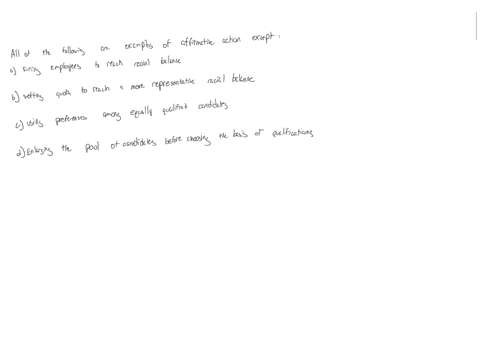 All of the following are examples of affirmative action except:
a) Firing employees to reach racial balance
b) setting goals to reach a more representative racial balance
c) using preferences among equally qualified candidates
d) Enlarging the pool of candidates before choosing the basis of qualifications